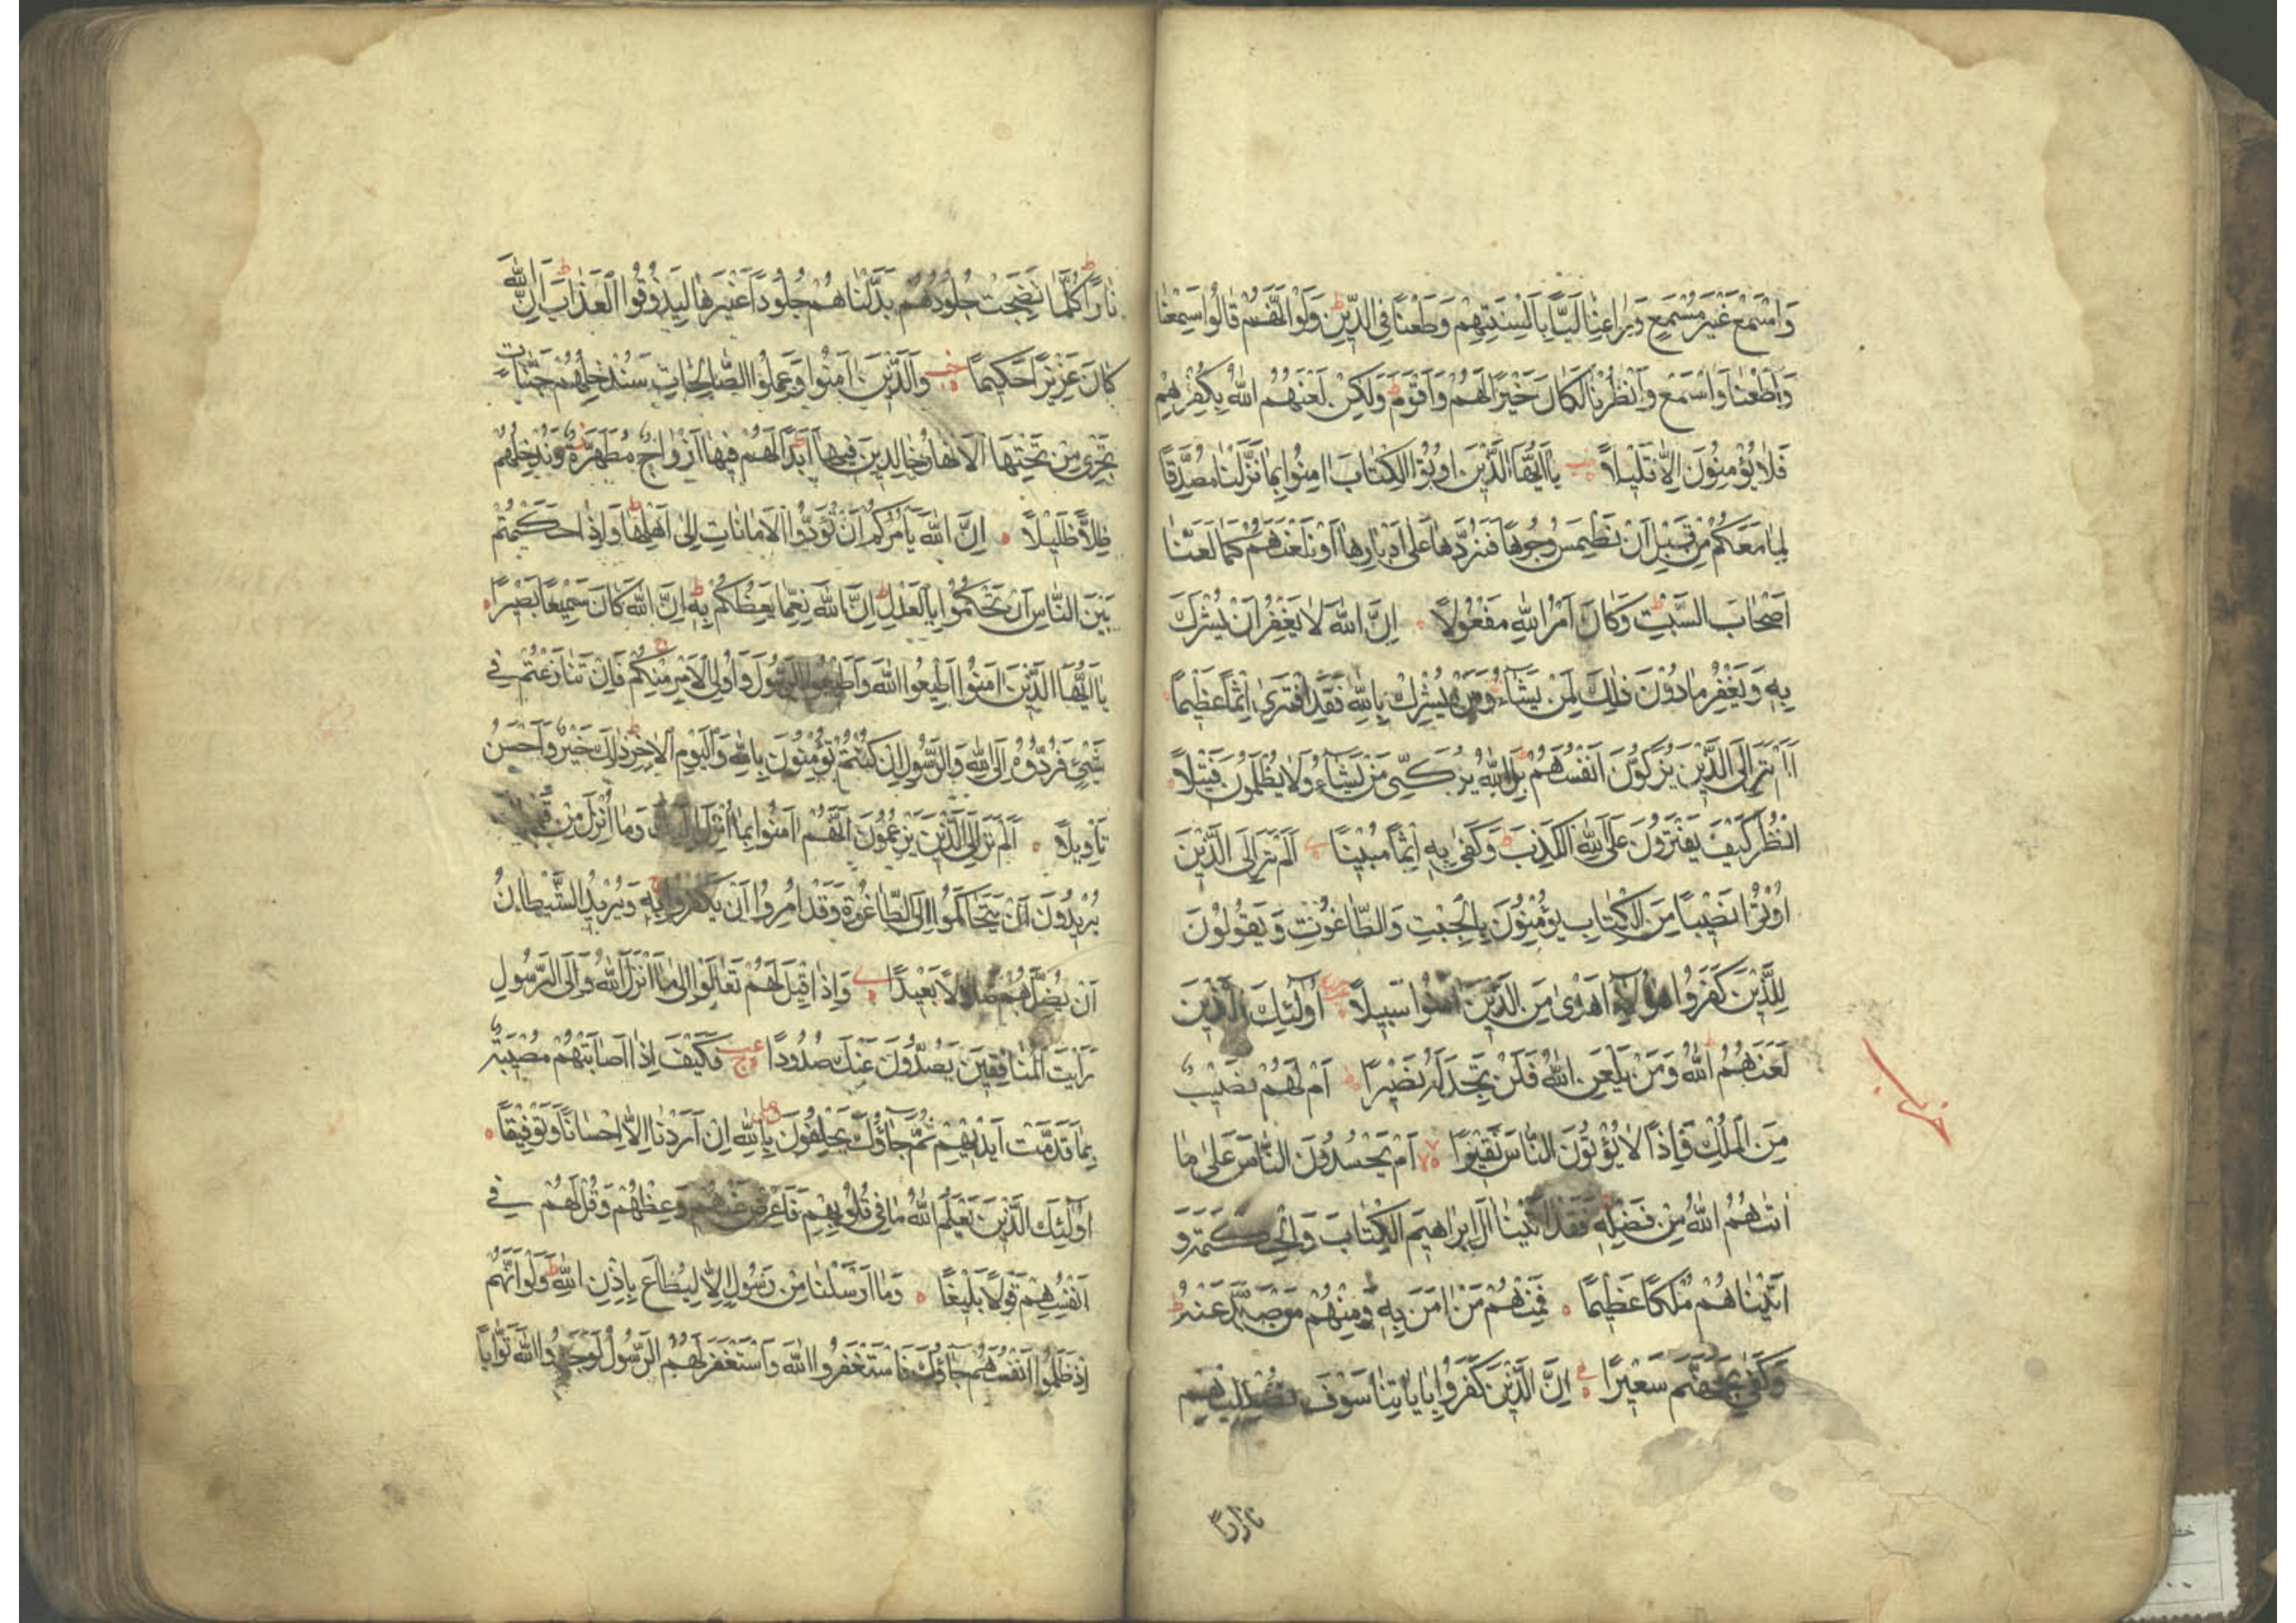 وَاسْمَعْ غَيْرَ مُسْمَعٍ وَرَاعِنَا لَيًّا بِاَلْسِنَتِهِمْ وَطَعْنًا فِي الدِّينِ وَلَوْ اَنَّهُمْ قَالُوا سَمِعْنَا
وَاَطَعْنَا وَاسْمَعْ وَانْظُرْنَا لَكَانَ خَيْرًا لَهُمْ وَاَقْوَمَ وَلَكِنْ لَعَنَهُمُ اللّٰهُ بِكُفْرِهِمْ
فَلَا يُؤْمِنُونَ اِلَّا قَلِيلًا يَا اَيُّهَا الَّذِينَ اُوتُوا الْكِتَابَ اٰمِنُوا بِمَا نَزَّلْنَا مُصَدِّقًا
لِمَا مَعَكُمْ مِنْ قَبْلِ اَنْ نَطْمِسَ وُجُوهًا فَنَرُدَّهَا عَلٰى اَدْبَارِهَا اَوْ نَلْعَنَهُمْ كَمَا لَعَنَّا
اَصْحَابَ السَّبْتِ وَكَانَ اَمْرُ اللّٰهِ مَفْعُولًا اِنَّ اللّٰهَ لَا يَغْفِرُ اَنْ يُشْرَكَ
بِهِ وَيَغْفِرُ مَا دُونَ ذٰلِكَ لِمَنْ يَشَآءُ وَمَنْ يُشْرِكْ بِاللّٰهِ فَقَدِ افْتَرٰى اِثْمًا عَظِيمًا
اَلَمْ تَرَ اِلَى الَّذِينَ يُزَكُّونَ اَنْفُسَهُمْ بَلِ اللّٰهُ يُزَكِّي مَنْ يَشَآءُ وَلَا يُظْلَمُونَ فَتِيلًا
اُنْظُرْ كَيْفَ يَفْتَرُونَ عَلَى اللّٰهِ الْكَذِبَ وَكَفٰى بِهِ اِثْمًا مُبِينًا اَلَمْ تَرَ اِلَى الَّذِينَ
اُوتُوا نَصِيبًا مِنَ الْكِتَابِ يُؤْمِنُونَ بِالْجِبْتِ وَالطَّاغُوتِ وَيَقُولُونَ
لِلَّذِينَ كَفَرُوا هٰؤُلَآءِ اَهْدٰى مِنَ الَّذِينَ اٰمَنُوا سَبِيلًا اُولٰئِكَ الَّذِينَ
لَعَنَهُمُ اللّٰهُ وَمَنْ يَلْعَنِ اللّٰهُ فَلَنْ تَجِدَ لَهُ نَصِيرًا اَمْ لَهُمْ نَصِيبٌ
مِنَ الْمُلْكِ فَاِذًا لَا يُؤْتُونَ النَّاسَ نَقِيرًا اَمْ يَحْسُدُونَ النَّاسَ عَلٰى مَا
اٰتٰيهُمُ اللّٰهُ مِنْ فَضْلِهِ فَقَدْ اٰتَيْنَا اٰلَ اِبْرَاهِيمَ الْكِتَابَ وَالْحِكْمَةَ وَ
اٰتَيْنَاهُمْ مُلْكًا عَظِيمًا فَمِنْهُمْ مَنْ اٰمَنَ بِهِ وَمِنْهُمْ مَنْ صَدَّ عَنْهُ
وَكَفٰى بِجَهَنَّمَ سَعِيرًا اِنَّ الَّذِينَ كَفَرُوا بِاٰيَاتِنَا سَوْفَ نُصْلِيهِمْ
نَارًا
نَارًا كُلَّمَا نَضِجَتْ جُلُودُهُمْ بَدَّلْنَاهُمْ جُلُودًا غَيْرَهَا لِيَذُوقُوا الْعَذَابَ اِنَّ اللّٰهَ
كَانَ عَزِيزًا حَكِيمًا وَالَّذِينَ اٰمَنُوا وَعَمِلُوا الصَّالِحَاتِ سَنُدْخِلُهُمْ جَنَّاتٍ
تَجْرِي مِنْ تَحْتِهَا الْاَنْهَارُ خَالِدِينَ فِيهَا اَبَدًا لَهُمْ فِيهَا اَزْوَاجٌ مُطَهَّرَةٌ وَنُدْخِلُهُمْ
ظِلًّا ظَلِيلًا اِنَّ اللّٰهَ يَاْمُرُكُمْ اَنْ تُؤَدُّوا الْاَمَانَاتِ اِلٰى اَهْلِهَا وَاِذَا حَكَمْتُمْ
بَيْنَ النَّاسِ اَنْ تَحْكُمُوا بِالْعَدْلِ اِنَّ اللّٰهَ نِعِمَّا يَعِظُكُمْ بِهِ اِنَّ اللّٰهَ كَانَ سَمِيعًا بَصِيرًا
يَا اَيُّهَا الَّذِينَ اٰمَنُوا اَطِيعُوا اللّٰهَ وَاَطِيعُوا الرَّسُولَ وَاُولِي الْاَمْرِ مِنْكُمْ فَاِنْ تَنَازَعْتُمْ فِي
شَيْءٍ فَرُدُّوهُ اِلَى اللّٰهِ وَالرَّسُولِ اِنْ كُنْتُمْ تُؤْمِنُونَ بِاللّٰهِ وَالْيَوْمِ الْاٰخِرِ ذٰلِكَ خَيْرٌ وَاَحْسَنُ
تَاْوِيلًا اَلَمْ تَرَ اِلَى الَّذِينَ يَزْعُمُونَ اَنَّهُمْ اٰمَنُوا بِمَا اُنْزِلَ اِلَيْكَ وَمَا اُنْزِلَ مِنْ قَبْلِكَ
يُرِيدُونَ اَنْ يَتَحَاكَمُوا اِلَى الطَّاغُوتِ وَقَدْ اُمِرُوا اَنْ يَكْفُرُوا بِهِ وَيُرِيدُ الشَّيْطَانُ
اَنْ يُضِلَّهُمْ ضَلَالًا بَعِيدًا وَاِذَا قِيلَ لَهُمْ تَعَالَوْا اِلٰى مَا اَنْزَلَ اللّٰهُ وَاِلَى الرَّسُولِ
رَاَيْتَ الْمُنَافِقِينَ يَصُدُّونَ عَنْكَ صُدُودًا فَكَيْفَ اِذَا اَصَابَتْهُمْ مُصِيبَةٌ
بِمَا قَدَّمَتْ اَيْدِيهِمْ ثُمَّ جَآؤُكَ يَحْلِفُونَ بِاللّٰهِ اِنْ اَرَدْنَا اِلَّا اِحْسَانًا وَتَوْفِيقًا
اُولٰئِكَ الَّذِينَ يَعْلَمُ اللّٰهُ مَا فِي قُلُوبِهِمْ فَاَعْرِضْ عَنْهُمْ وَعِظْهُمْ وَقُلْ لَهُمْ فِي
اَنْفُسِهِمْ قَوْلًا بَلِيغًا وَمَا اَرْسَلْنَا مِنْ رَسُولٍ اِلَّا لِيُطَاعَ بِاِذْنِ اللّٰهِ وَلَوْ اَنَّهُمْ
اِذْ ظَلَمُوا اَنْفُسَهُمْ جَآؤُكَ فَاسْتَغْفَرُوا اللّٰهَ وَاسْتَغْفَرَ لَهُمُ الرَّسُولُ لَوَجَدُوا اللّٰهَ تَوَّابًا